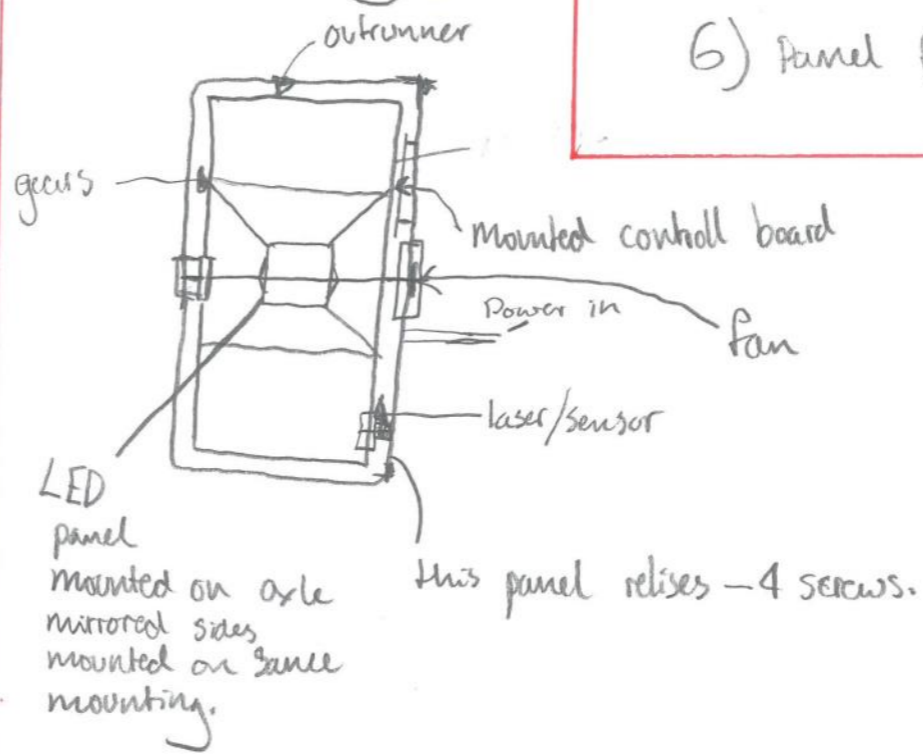 outrunner
6) Panel
gears
mounted controll board
Power in
fan
laser/sensor
LED
panel
mounted on axle
mirrored sides
mounted on
mounting.
this panel relises – 4 screws.